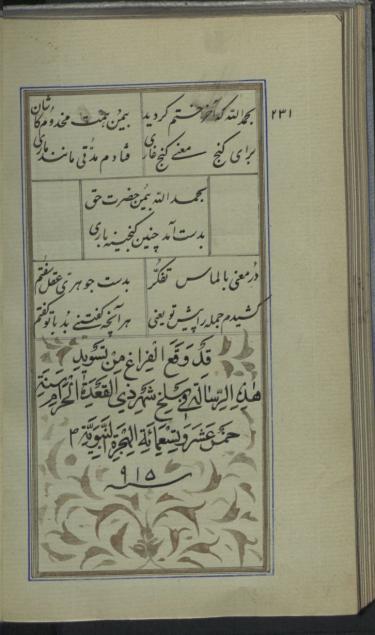 ۲۳۱
بحمدالله که آخر ختم گردید بیمن همت مخدوم کاشان
برای گنج معنی کنج غاری فتادم مدتی مانند ماری
بحمد الله بیمن حضرت حق
بدست آمد چنین گنجینه باری
در معنی بالماس تفکر بدست جوهری عقل سفتم
کشیدم جمله را پیش تو یعنی هر آنچه گفتنی بد با تو گفتم
قد وقع الفراغ من تسوید
هذه الرسالة فی سلخ شهر ذی القعدة الحرام سنة
خمس عشر و تسعمائة الهجرة النبویة م
سنه ۹۱۵